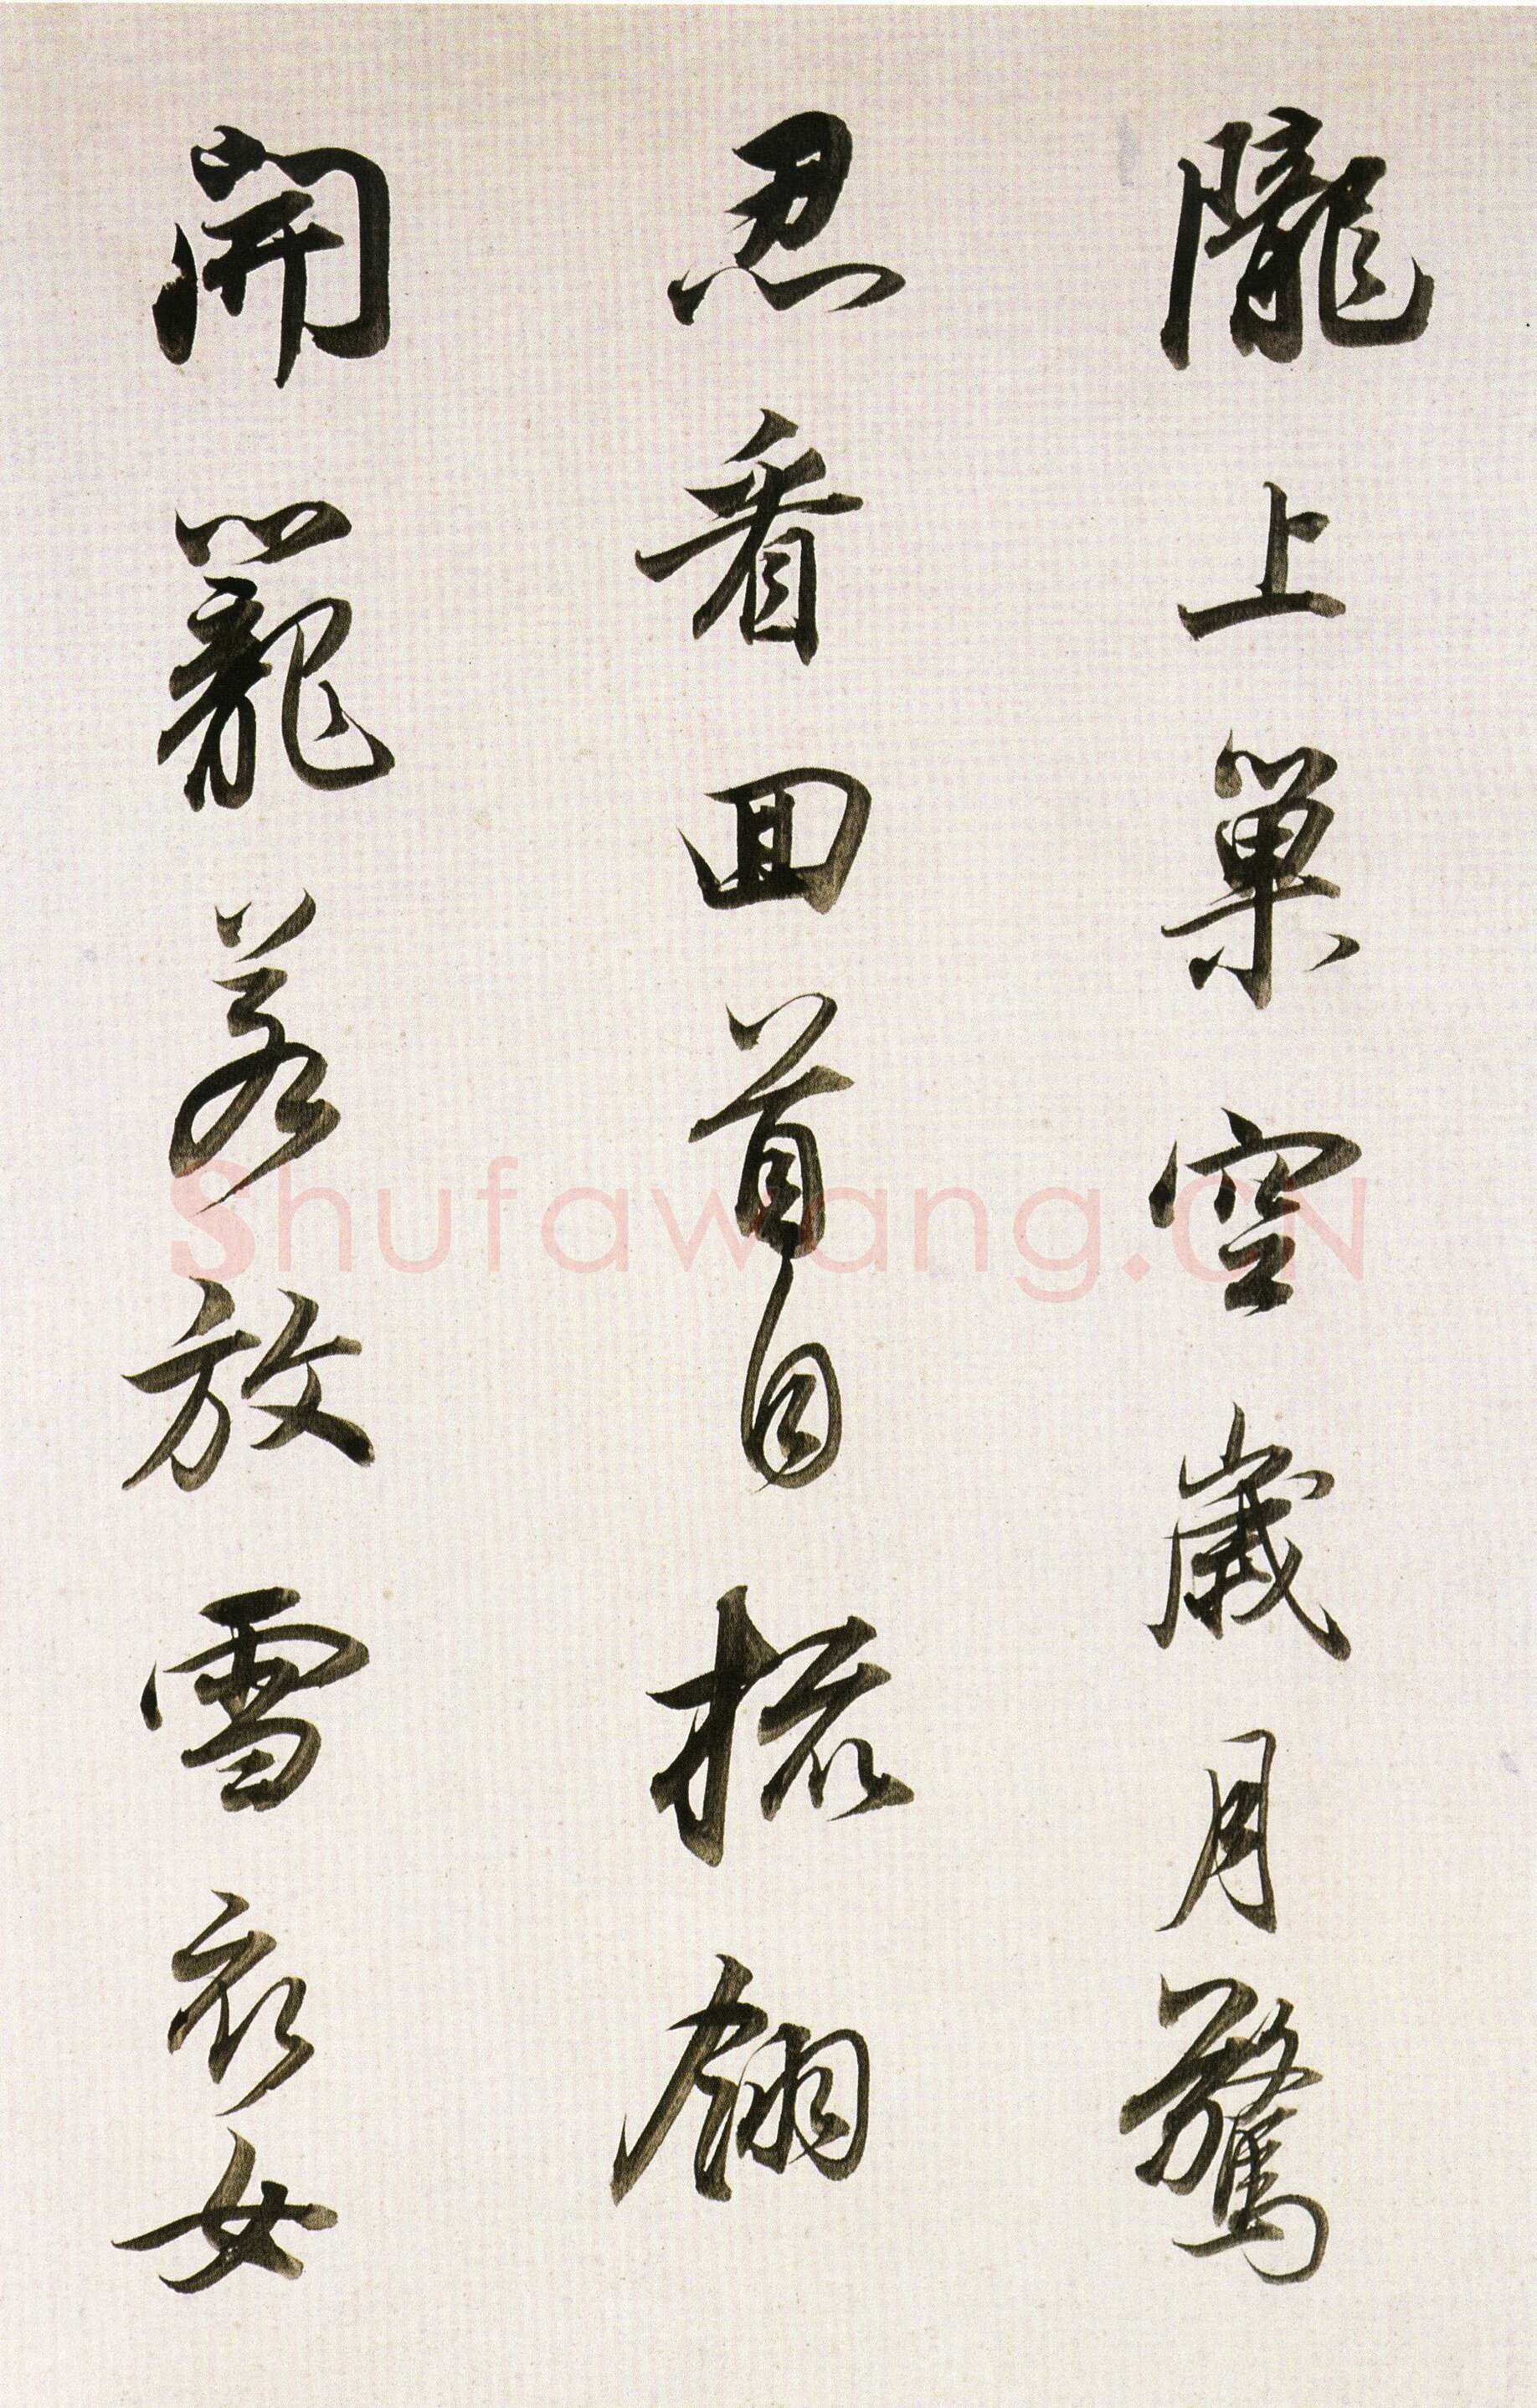 隴上巢空歲月驚
忍看回首自梳翎
開籠若放雪衣女
Shufawang.CN